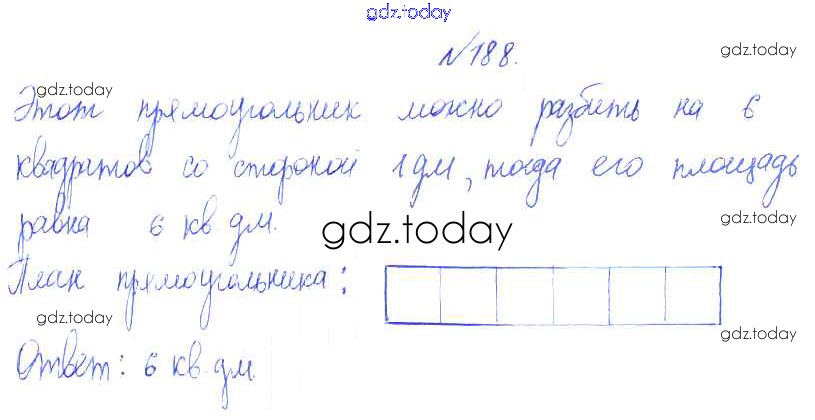 gdz.today
№188.
gdz.today
gdz.today
Этот прямоугольник можно разбить на 6
квадратов со стороной 1 дм, тогда его площадь
gdz.today
равна 6 кв. дм.
gdz.today
План прямоугольника:
gdz.today
gdz.today
Ответ: 6 кв. дм.